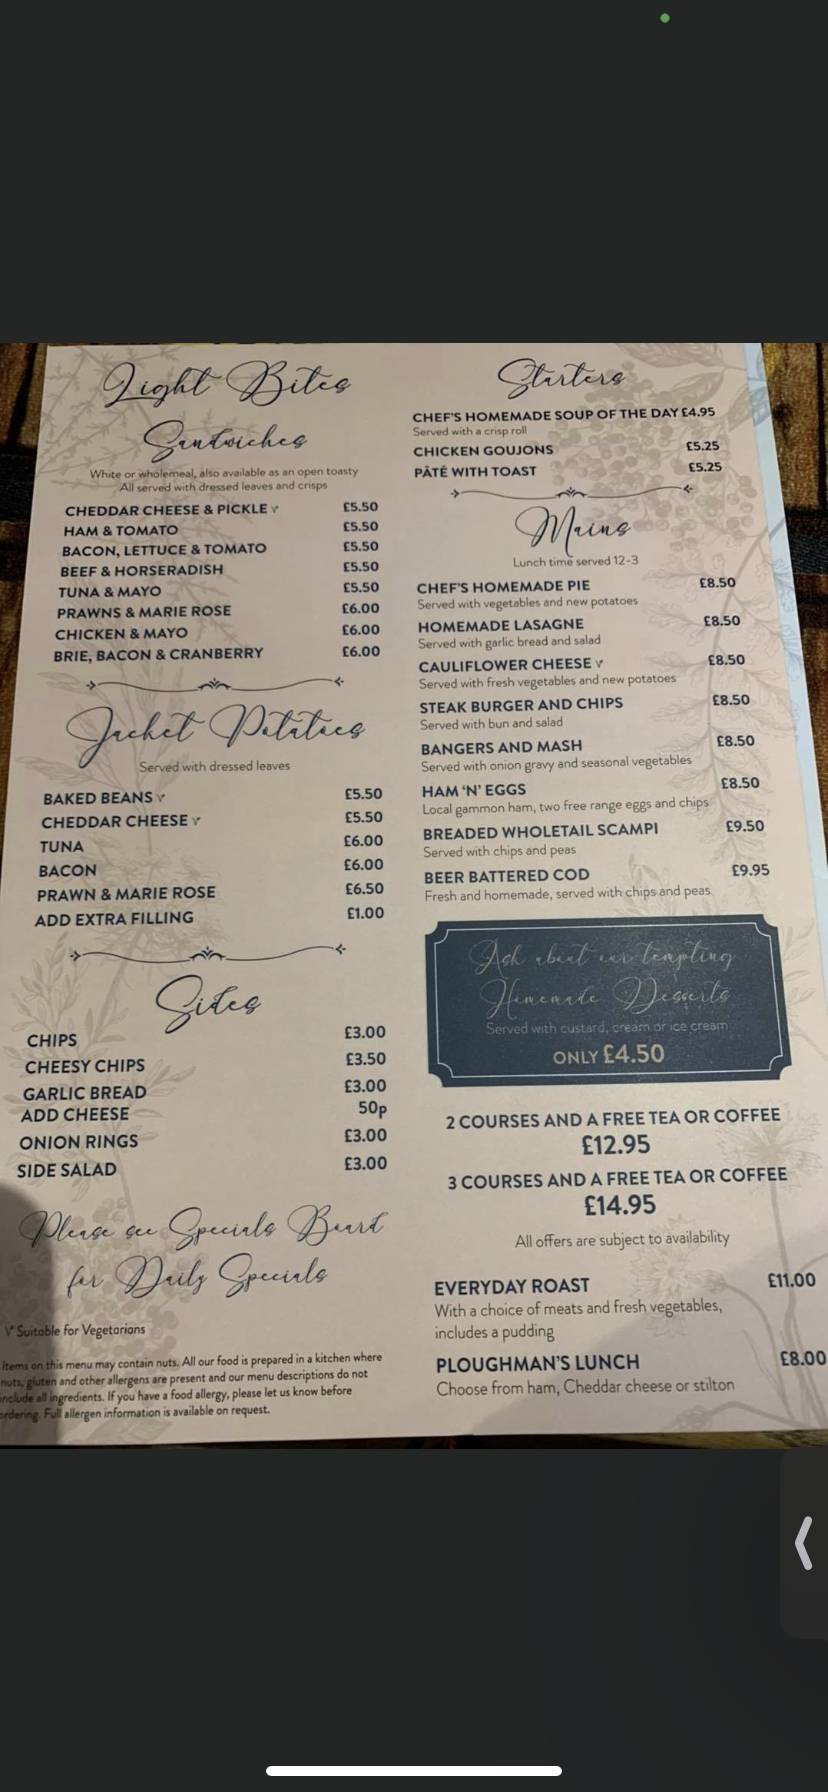 Light Bites
Sandwiches
White or wholemeal, also available as an open toasty
All served with dressed leaves and crisps
CHEDDAR CHEESE & PICKLE V £5.50
HAM & TOMATO £5.50
BACON, LETTUCE & TOMATO £5.50
BEEF & HORSERADISH £5.50
TUNA & MAYO £5.50
PRAWNS & MARIE ROSE £6.00
CHICKEN & MAYO £6.00
BRIE, BACON & CRANBERRY £6.00
Jacket Potatoes
Served with dressed leaves
BAKED BEANS V £5.50
CHEDDAR CHEESE V £5.50
TUNA £6.00
BACON £6.00
PRAWN & MARIE ROSE £6.50
ADD EXTRA FILLING £1.00
Sides
CHIPS £3.00
CHEESY CHIPS £3.50
GARLIC BREAD £3.00
ADD CHEESE 50p
ONION RINGS £3.00
SIDE SALAD £3.00
Please see Specials Board
for Daily Specials
V Suitable for Vegetarians
Items on this menu may contain nuts. All our food is prepared in a kitchen where
nuts, gluten and other allergens are present and our menu descriptions do not
include all ingredients. If you have a food allergy, please let us know before
ordering. Full allergen information is available on request.
Starters
CHEF'S HOMEMADE SOUP OF THE DAY £4.95
Served with a crisp roll
CHICKEN GOUJONS £5.25
PÂTÉ WITH TOAST £5.25
Mains
Lunch time served 12-3
CHEF'S HOMEMADE PIE £8.50
Served with vegetables and new potatoes
HOMEMADE LASAGNE £8.50
Served with garlic bread and salad
CAULIFLOWER CHEESE V £8.50
Served with fresh vegetables and new potatoes
STEAK BURGER AND CHIPS £8.50
Served with bun and salad
BANGERS AND MASH £8.50
Served with onion gravy and seasonal vegetables
HAM 'N' EGGS £8.50
Local gammon ham, two free range eggs and chips
BREADED WHOLETAIL SCAMPI £9.50
Served with chips and peas
BEER BATTERED COD £9.95
Fresh and homemade, served with chips and peas
Ask about our tempting
Homemade Desserts
Served with custard, cream or ice cream
ONLY £4.50
2 COURSES AND A FREE TEA OR COFFEE
£12.95
3 COURSES AND A FREE TEA OR COFFEE
£14.95
All offers are subject to availability
EVERYDAY ROAST £11.00
With a choice of meats and fresh vegetables,
includes a pudding
PLOUGHMAN'S LUNCH £8.00
Choose from ham, Cheddar cheese or stilton